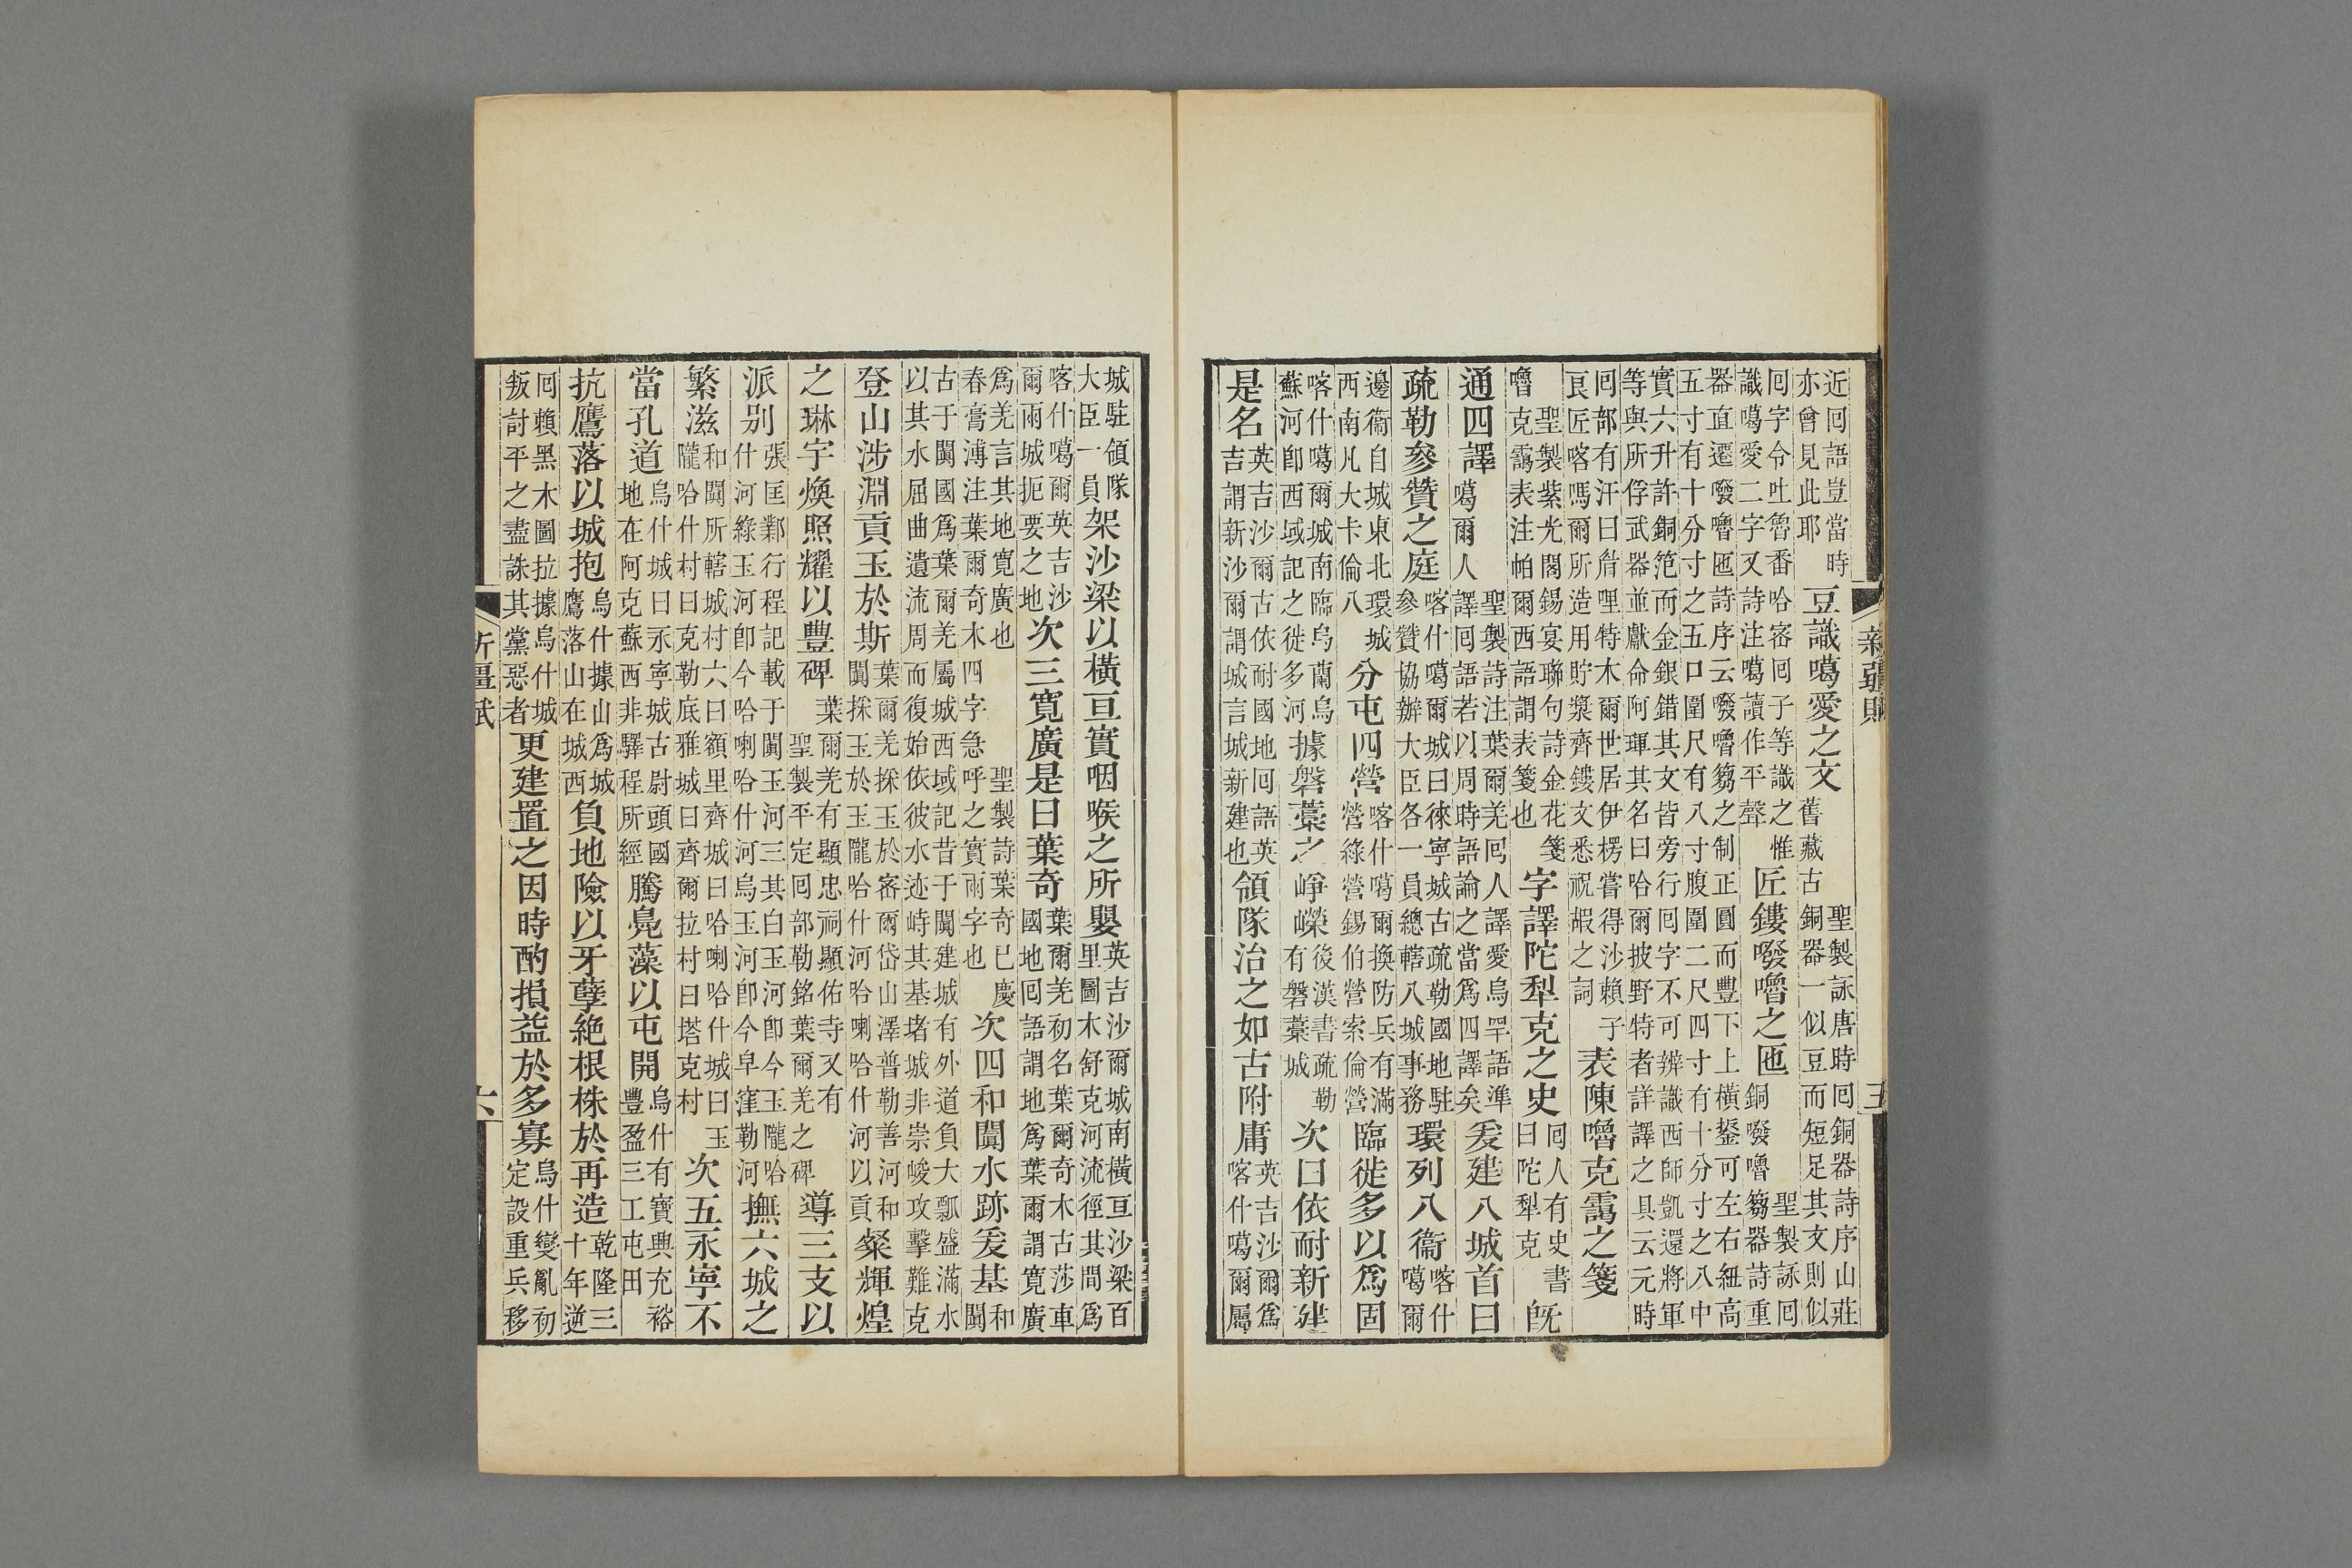 近囘語豈當時
亦曾見此耶
豆識噶愛之文
聖製詠唐時囘銅器詩序山莊
舊藏古銅器一似豆而短足其文則似
囘字令吐魯番哈密囘子等識之惟
識噶愛二字又詩注噶讀作平聲
匠鏤㗶嚕之匜
聖製詠囘
銅㗶嚕芻器詩重
器直遷㗶嚕匜詩序云㗶嚕芻之制正圓而豐下上橫鋬可左右紐高
五寸有十分寸之五口圍尺有八寸腹圍二尺四寸有十分寸之八中
實六升許銅笵而金銀錯其文皆旁行囘字不可辨識西師凱還將軍
等與所俘武器並獻命阿琿其名曰哈爾披野特者詳譯之具云元時
囘部有汗曰眉哩特木爾世居伊楞嘗得沙賴子
艮匠喀嗎爾所造用貯漿齊鏤文悉祝嘏之詞
表陳嚕克靄之箋
聖製紫光閣錫宴聯句詩金花箋
嚕克靄表注帕爾西語謂表箋也
字譯陀犁克之史
囘人有史書
曰陀犁克
旣
通四譯
聖製詩注葉爾羌囘人譯愛烏罕語準
噶爾人譯囘語若以周時語論之當爲四譯矣
爰建八城首曰
疏勒參贊之庭
喀什噶爾城曰徠寧城古疏勒國地駐
參贊協辦大臣各一員總轄八城事務
環列八衞
喀什
噶爾
邊衞自城東北環城
西南凡大卡倫八
分屯四營
喀什噶爾換防兵有滿
營綠營錫伯營索倫營
臨徙多以爲固
喀什噶爾城南臨烏蘭烏
蘇河卽西域記之徙多河
據磐藁之崢嶸
後漢書疏勒
有磐藁城
次曰依耐新建
是名
英吉沙爾古依耐國地囘語英
吉謂新沙爾謂城言城新建也
領隊治之如古附庸
英吉沙爾爲
喀什噶爾屬
新疆賦
五
城駐領隊
大臣一員
架沙梁以橫亘實咽喉之所嬰
英吉沙爾城南橫亘沙梁百
里圖木舒克河流徑其間爲
喀什噶爾英吉沙
爾兩城扼要之地
次三寛廣是曰葉奇
葉爾羌初名葉爾奇木古莎車
國地囘語謂地爲葉爾謂寛廣
爲羌言其地寛廣也
聖製詩葉奇已慶
春膏溥注葉爾奇木四字急呼之實兩字也
次四和闐水跡爰基
和
闐
古于闐國爲葉爾羌屬城西域記昔于闐建城有外道負大瓢盛滿水
以其水屈曲遺流周而復始依彼水迹峙其基堵城非崇峻攻擊難克
登山涉淵貢玉於斯
葉爾羌採玉於密爾岱山澤普勒善河和
闐採玉於玉隴哈什河哈喇哈什河以貢
粲輝煌
之琳宇煥照耀以豐碑
葉爾羌有顯忠祠顯佑寺又有
聖製平定囘部勒銘葉爾羌之碑
導三支以
派别
張匡鄴行程記載于闐玉河三其白玉河卽今玉隴哈
什河綠玉河卽今哈喇哈什河烏玉河卽今皁窪勒河
撫六城之
繁滋
和闐所轄城村六曰額里齊城曰哈喇哈什城曰玉
隴哈什村曰克勒底雅城曰齊爾拉村曰塔克村
次五永寧不
當孔道
烏什城曰永寧城古尉頭國
地在阿克蘇西非驛程所經
騰鳧藻以屯開
烏什有寶興充裕
豐盈三工屯田
抗鷹落以城抱
烏什據山爲城
鷹落山在城西
負地險以牙孽絶根株於再造
乾隆三
十年逆
囘賴黑木圖拉據烏什城
叛討平之盡誅其黨惡者
更建置之因時酌損益於多寡
烏什變亂初
定設重兵移
新疆賦
六